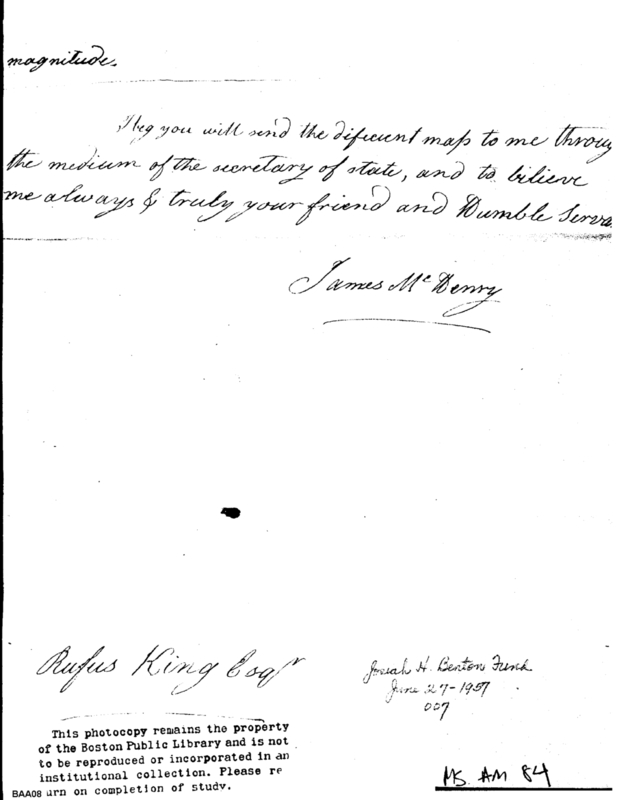 magnitude.
I beg you will send the different map to me throug
the medium of the secretary of state, and to believe
me always & truly your friend and Humble Serva
James McHenry
Rufus King Esqr
Josiah H. Benton Fund
June 27-1957
007
This photocopy remains the property
of the Boston Public Library and is not
to be reproduced or incorporated in an
institutional collection. Please re
BAA08 urn on completion of study.
MS. AM 84